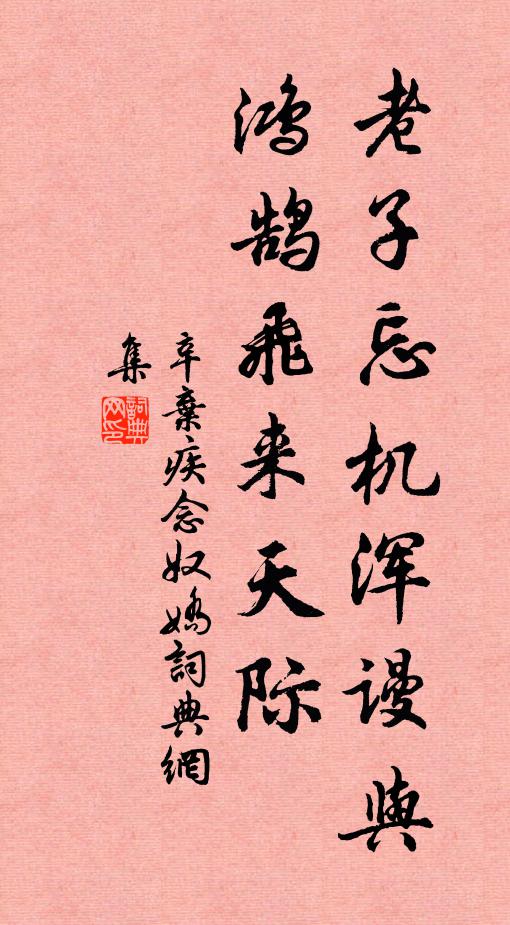 老子忘机浑谩与
鸿鹄飞来天际
辛棄疾念奴嬌詞典網
集
詞典
网印